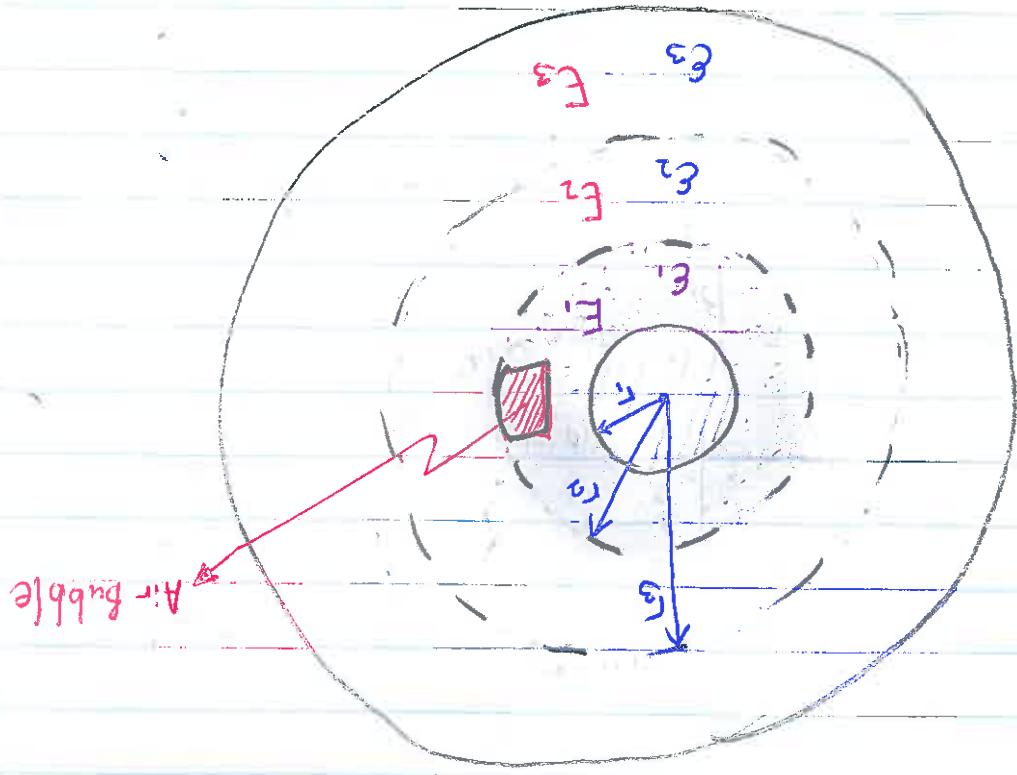 Air Bubble
r3
r2
r1
E1
ε1
E2
ε2
E3
ε3